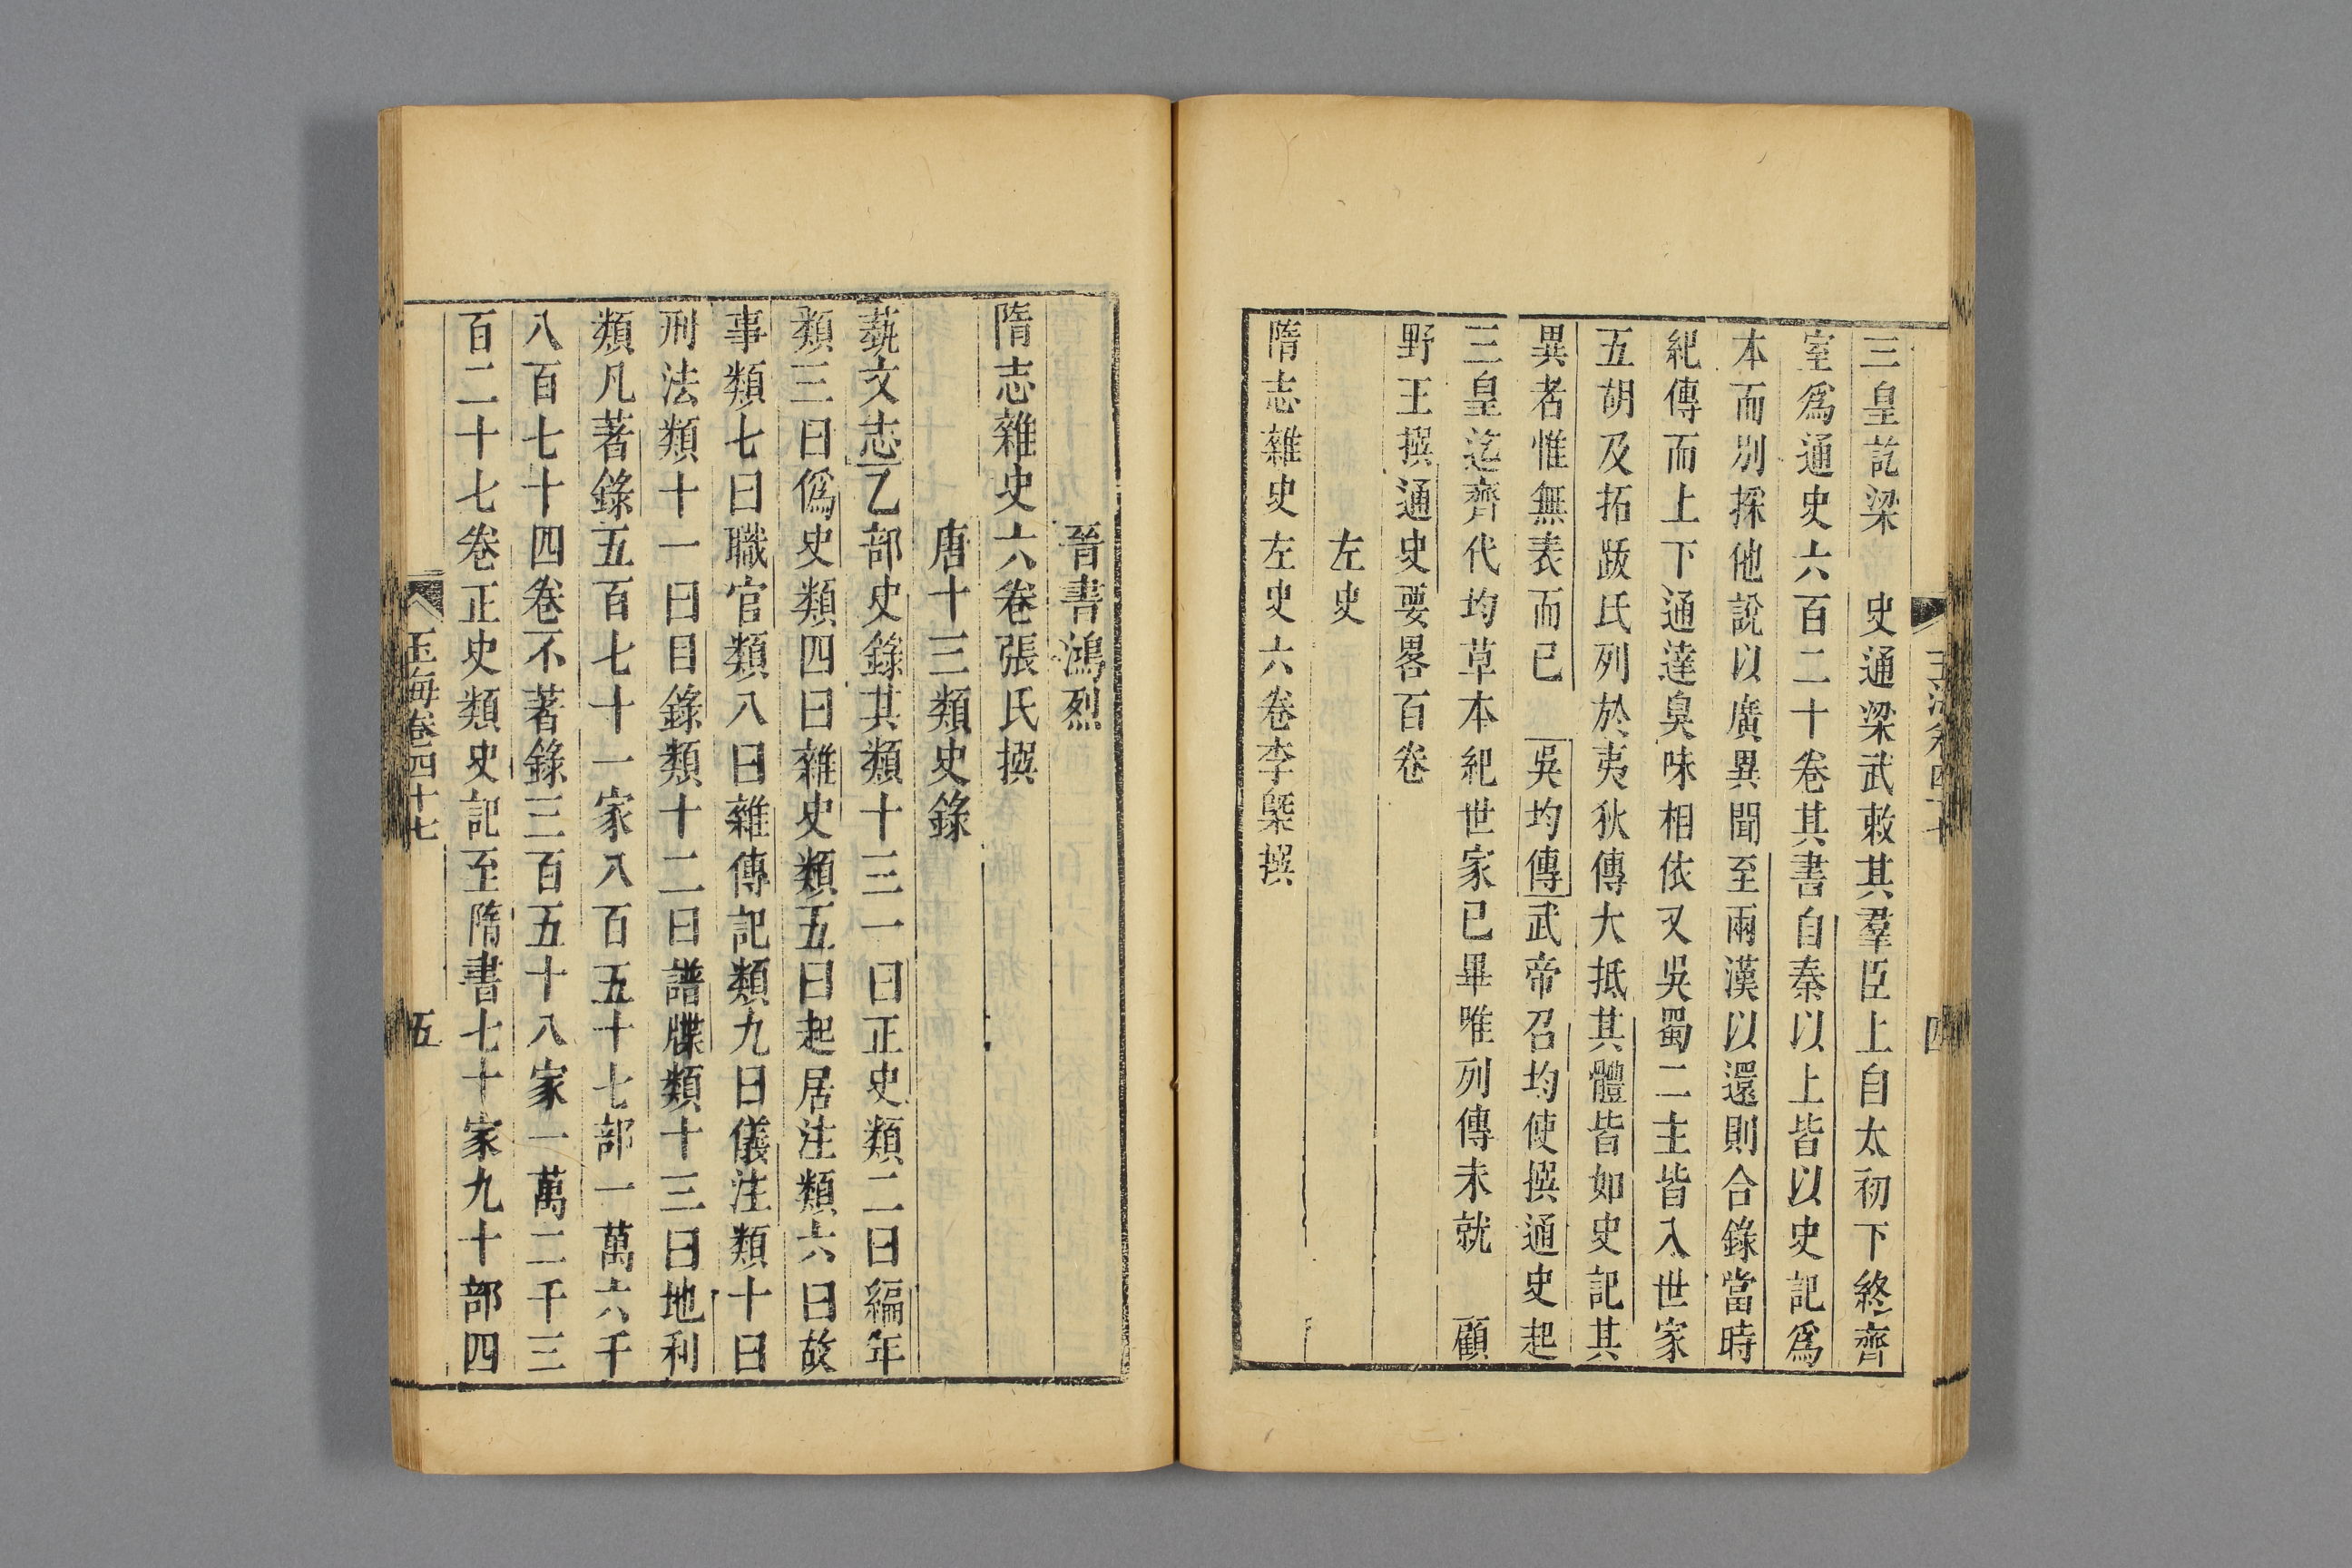 三皇訖梁 史通梁武敕其羣臣上自太初下終齊
室爲通史六百二十卷其書自秦以上皆以史記爲
本而別採他說以廣異聞至兩漢以還則合錄當時
紀傳而上下通達臭味相依又吳蜀二主皆入世家
五胡及拓跋氏列於夷狄傳大抵其體皆如史記其
異者惟無表而已 吳均傳武帝召均使撰通史起
三皇迄齊代均草本紀世家已畢唯列傳未就 顧
野王撰通史要畧百卷
左史
隋志雜史左史六卷李槩撰
晉書鴻烈
隋志雜史六卷張氏撰
唐十三類史錄
蓺文志乙部史錄其類十三一曰正史類二曰編年
類三曰僞史類四曰雜史類五曰起居注類六曰故
事類七曰職官類八曰雜傳記類九曰儀注類十曰
刑法類十一曰目錄類十二曰譜牒類十三曰地利
類凡著錄五百七十一家八百五十七部一萬六千
八百七十四卷不著錄三百五十八家一萬二千三
百二十七卷正史類史記至隋書七十家九十部四
玉海卷四十七
五